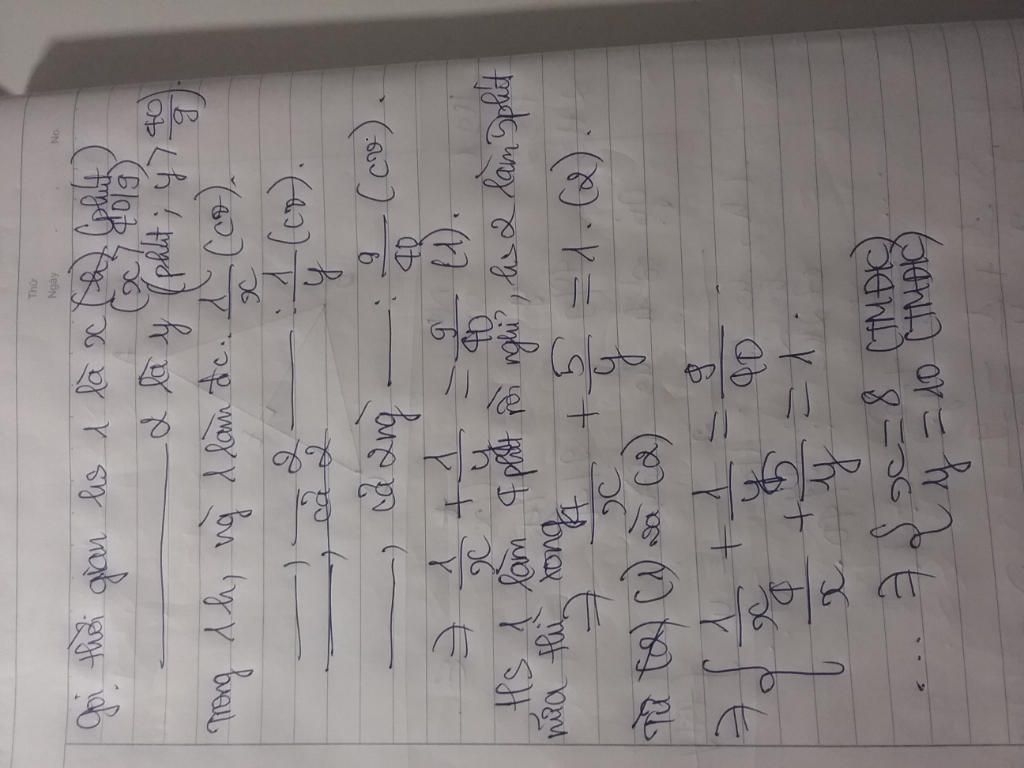 Thứ
Ngày
No.
Gọi thời gian hs 1 là x (phút) (x > 40/9)
——— 2 là y (phút; y > 40/9).
Trong 1h, ng 1 làm đc: 1/x (cv).
———, —— 2 ———: 1/y (cv).
———, cả 2ng ———: 9/40 (cv).
⇒ 1/x + 1/y = 9/40 (1).
HS 1 làm 4 phút rồi nghỉ, hs 2 làm 5 phút
nữa thì xong
⇒ 4/x + 5/y = 1. (2).
Từ (1) và (2)
⇒ { 1/x + 1/y = 9/40
4/x + 5/y = 1.
... ⇒ { x = 8 (TMĐK)
y = 10 (TMĐK)